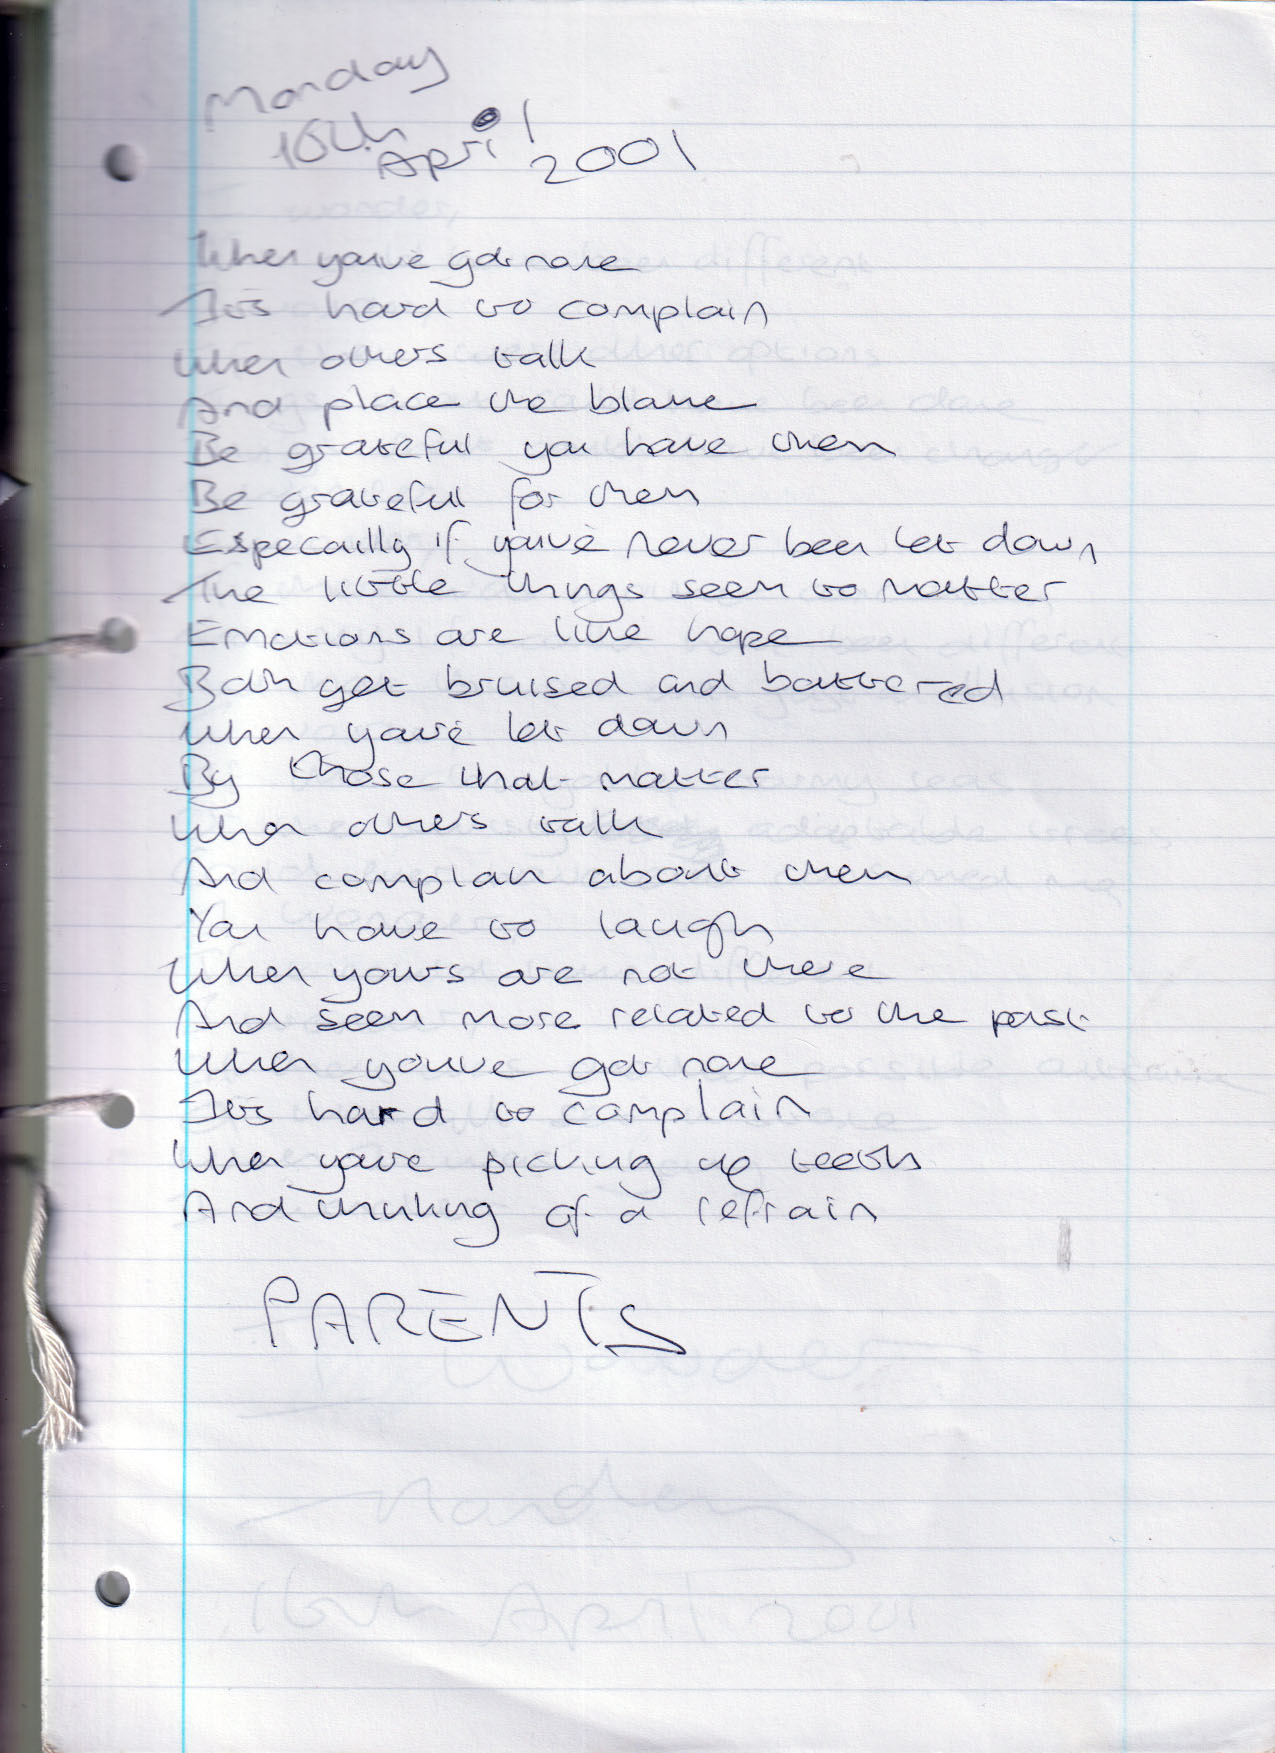 Monday
16th
April 2001
When you've got none
It's hard to complain
When others talk
And place the blame
Be grateful you have them
Be grateful for them
Especailly if you've never been let down
The little things seem to matter
Emotions are like hope
Both get bruised and battered
When you're let down
By those that matter
When others talk
And complain about them
You have to laugh
When yours are not there
And seem more related to the past
When you've got none
It's hard to complain
When you're picking up teeth
And thinking of a refrain
PARENTS